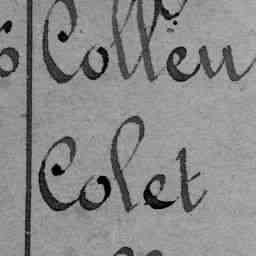 Collëu
Colet